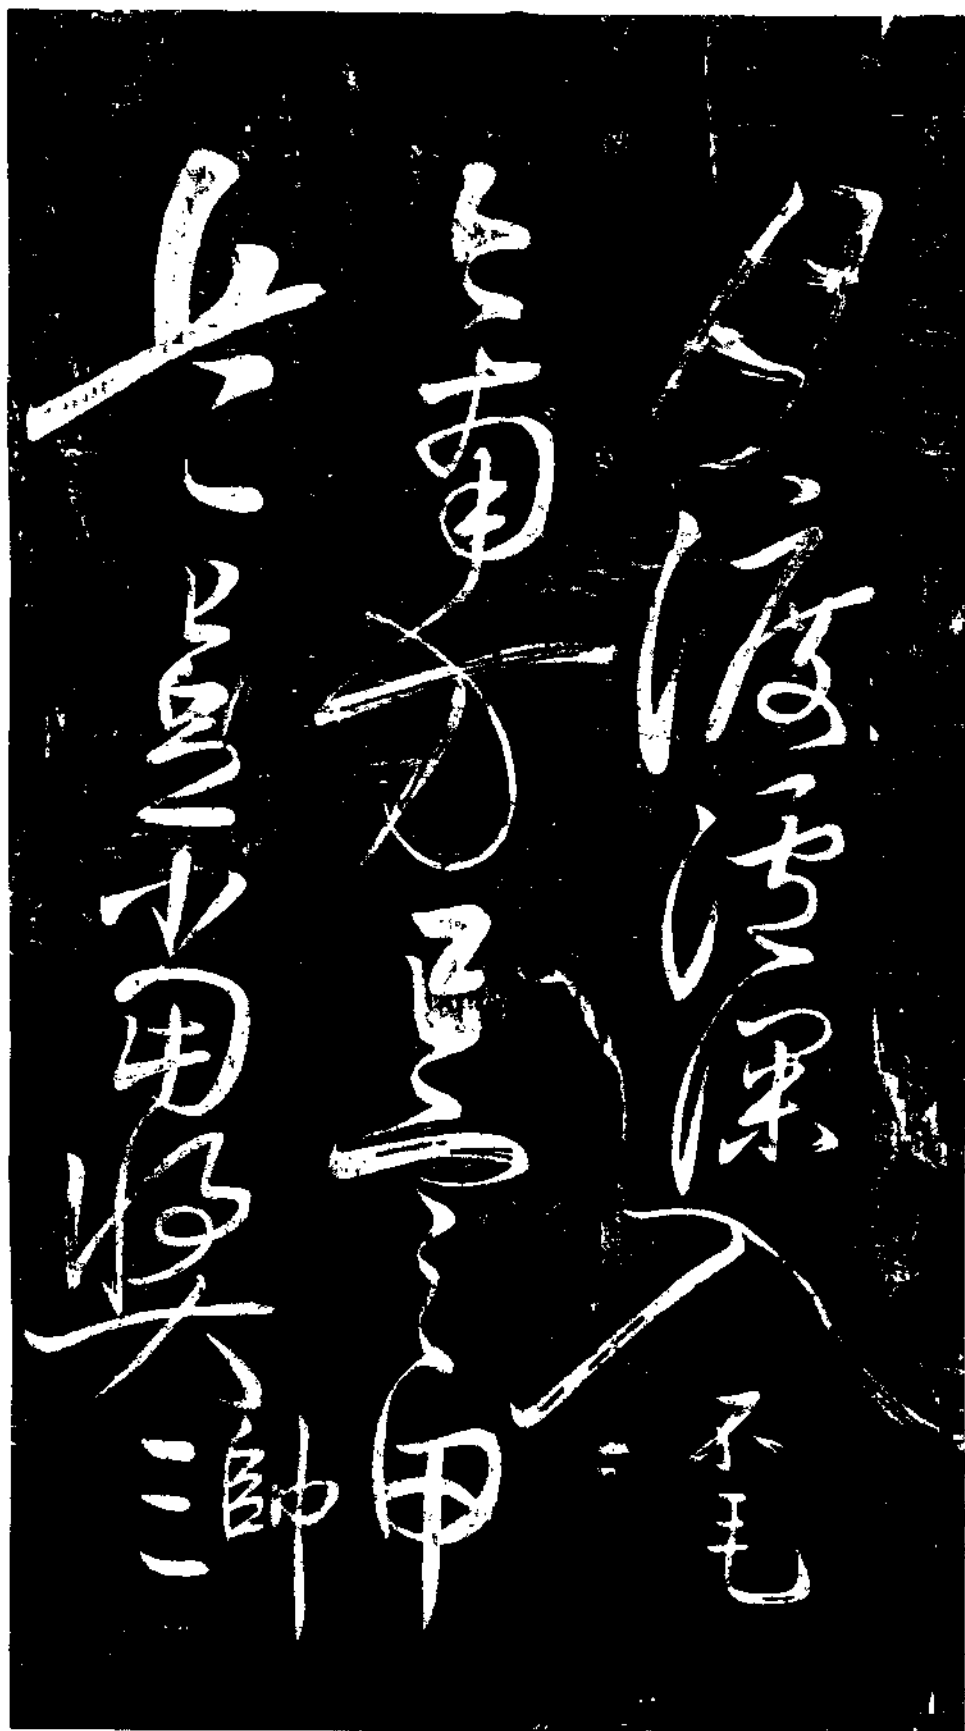 月渡瀘深入不毛
今南方已定甲
兵已足當獎帥三